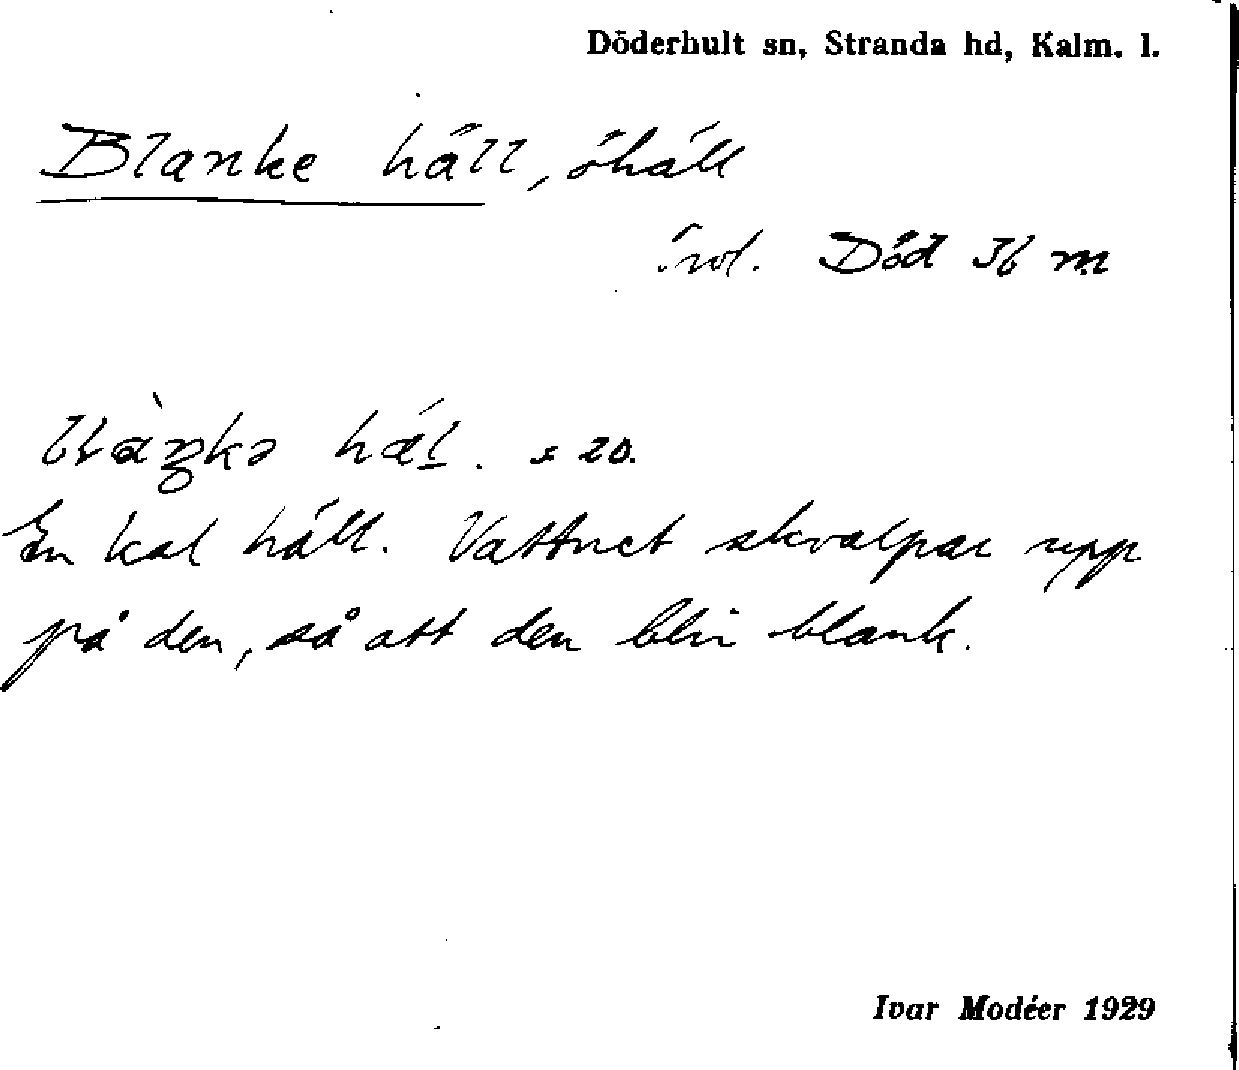 Döderhult sn, Stranda hd, Kalm. l.
Blanke häll, öhäll
Död Jb m
häl. s 20.
En kal häll. Vattnet skvalpar upp
på den, så att den blir blank.
Ivar Modéer 1929